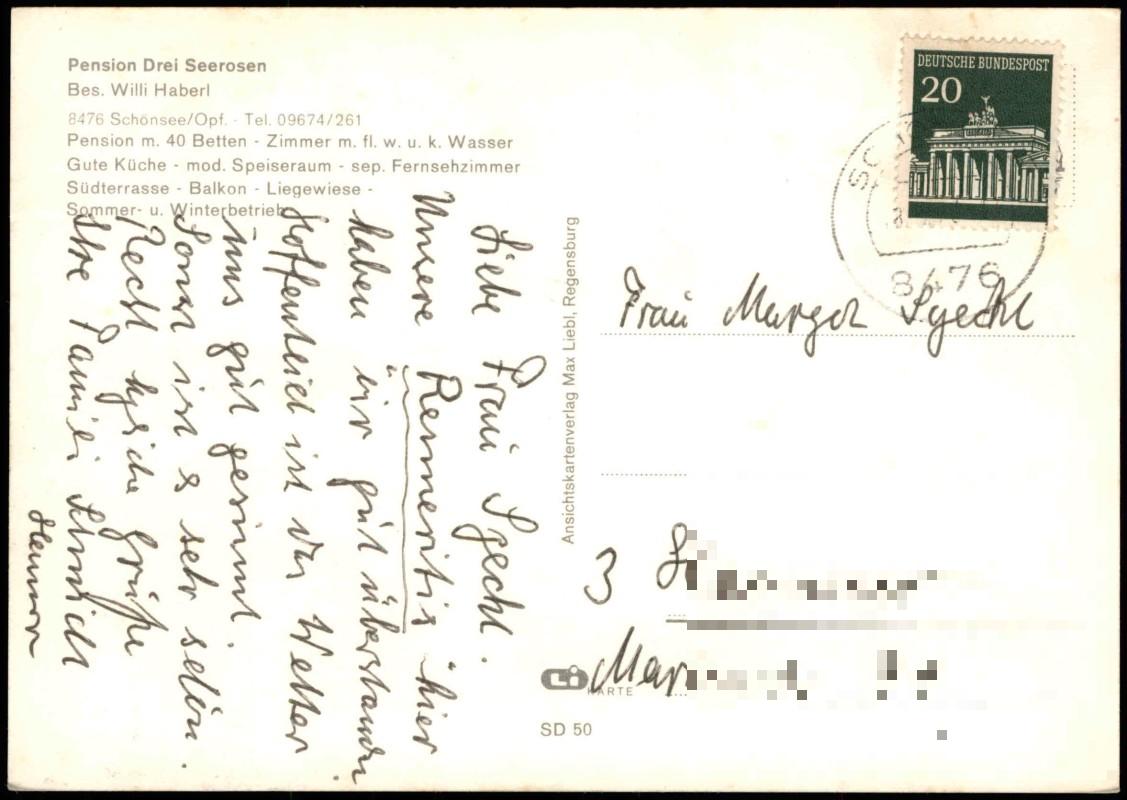 Pension Drei Seerosen
Bes. Willi Haberl
8476 Schönsee/Opf. · Tel. 09674/261
Pension m. 40 Betten - Zimmer m. fl. w. u. k. Wasser
Gute Küche - mod. Speiseraum - sep. Fernsehzimmer
Südterrasse - Balkon - Liegewiese -
Sommer- u. Winterbetrieb
Liebe Frau Specht.
Unsere "Renneritis" hier
haben wir gut überstanden.
Hoffentlich ist das Wetter
uns gut gesinnt.
Sonst ist es sehr schön.
Recht herzliche Grüße
Ihre Familie Schmidt
Ansichtskartenverlag Max Liebl, Regensburg
DEUTSCHE BUNDESPOST
20
8476
Frau Margot Specht
3
Li
KARTE
SD 50